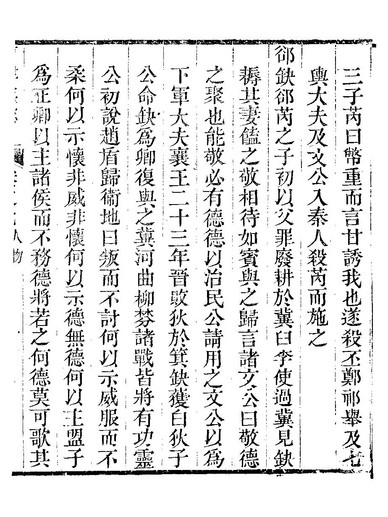 三子芮曰幣重而言甘誘我也遂殺丕鄭祁舉及七
輿大夫及文公入秦人殺芮而施之
郤缺郤芮之子初以父罪廢耕於冀臼季使過冀見缺
耨其妻饁之敬相待如賓與之歸言諸文公曰敬德
之聚也能敬必有德德以治民公請用之文公以為
下軍大夫襄王二十三年晉敗狄於箕缺獲白狄子
公命缺為卿復與之冀河曲柳棼諸戰皆將有功靈
公初說趙盾歸衛地曰叛而不討何以示威服而不
柔何以示懷非威非懷何以示德無德何以主盟子
為正卿以主諸侯而不務德將若之何德莫可歌其
人物